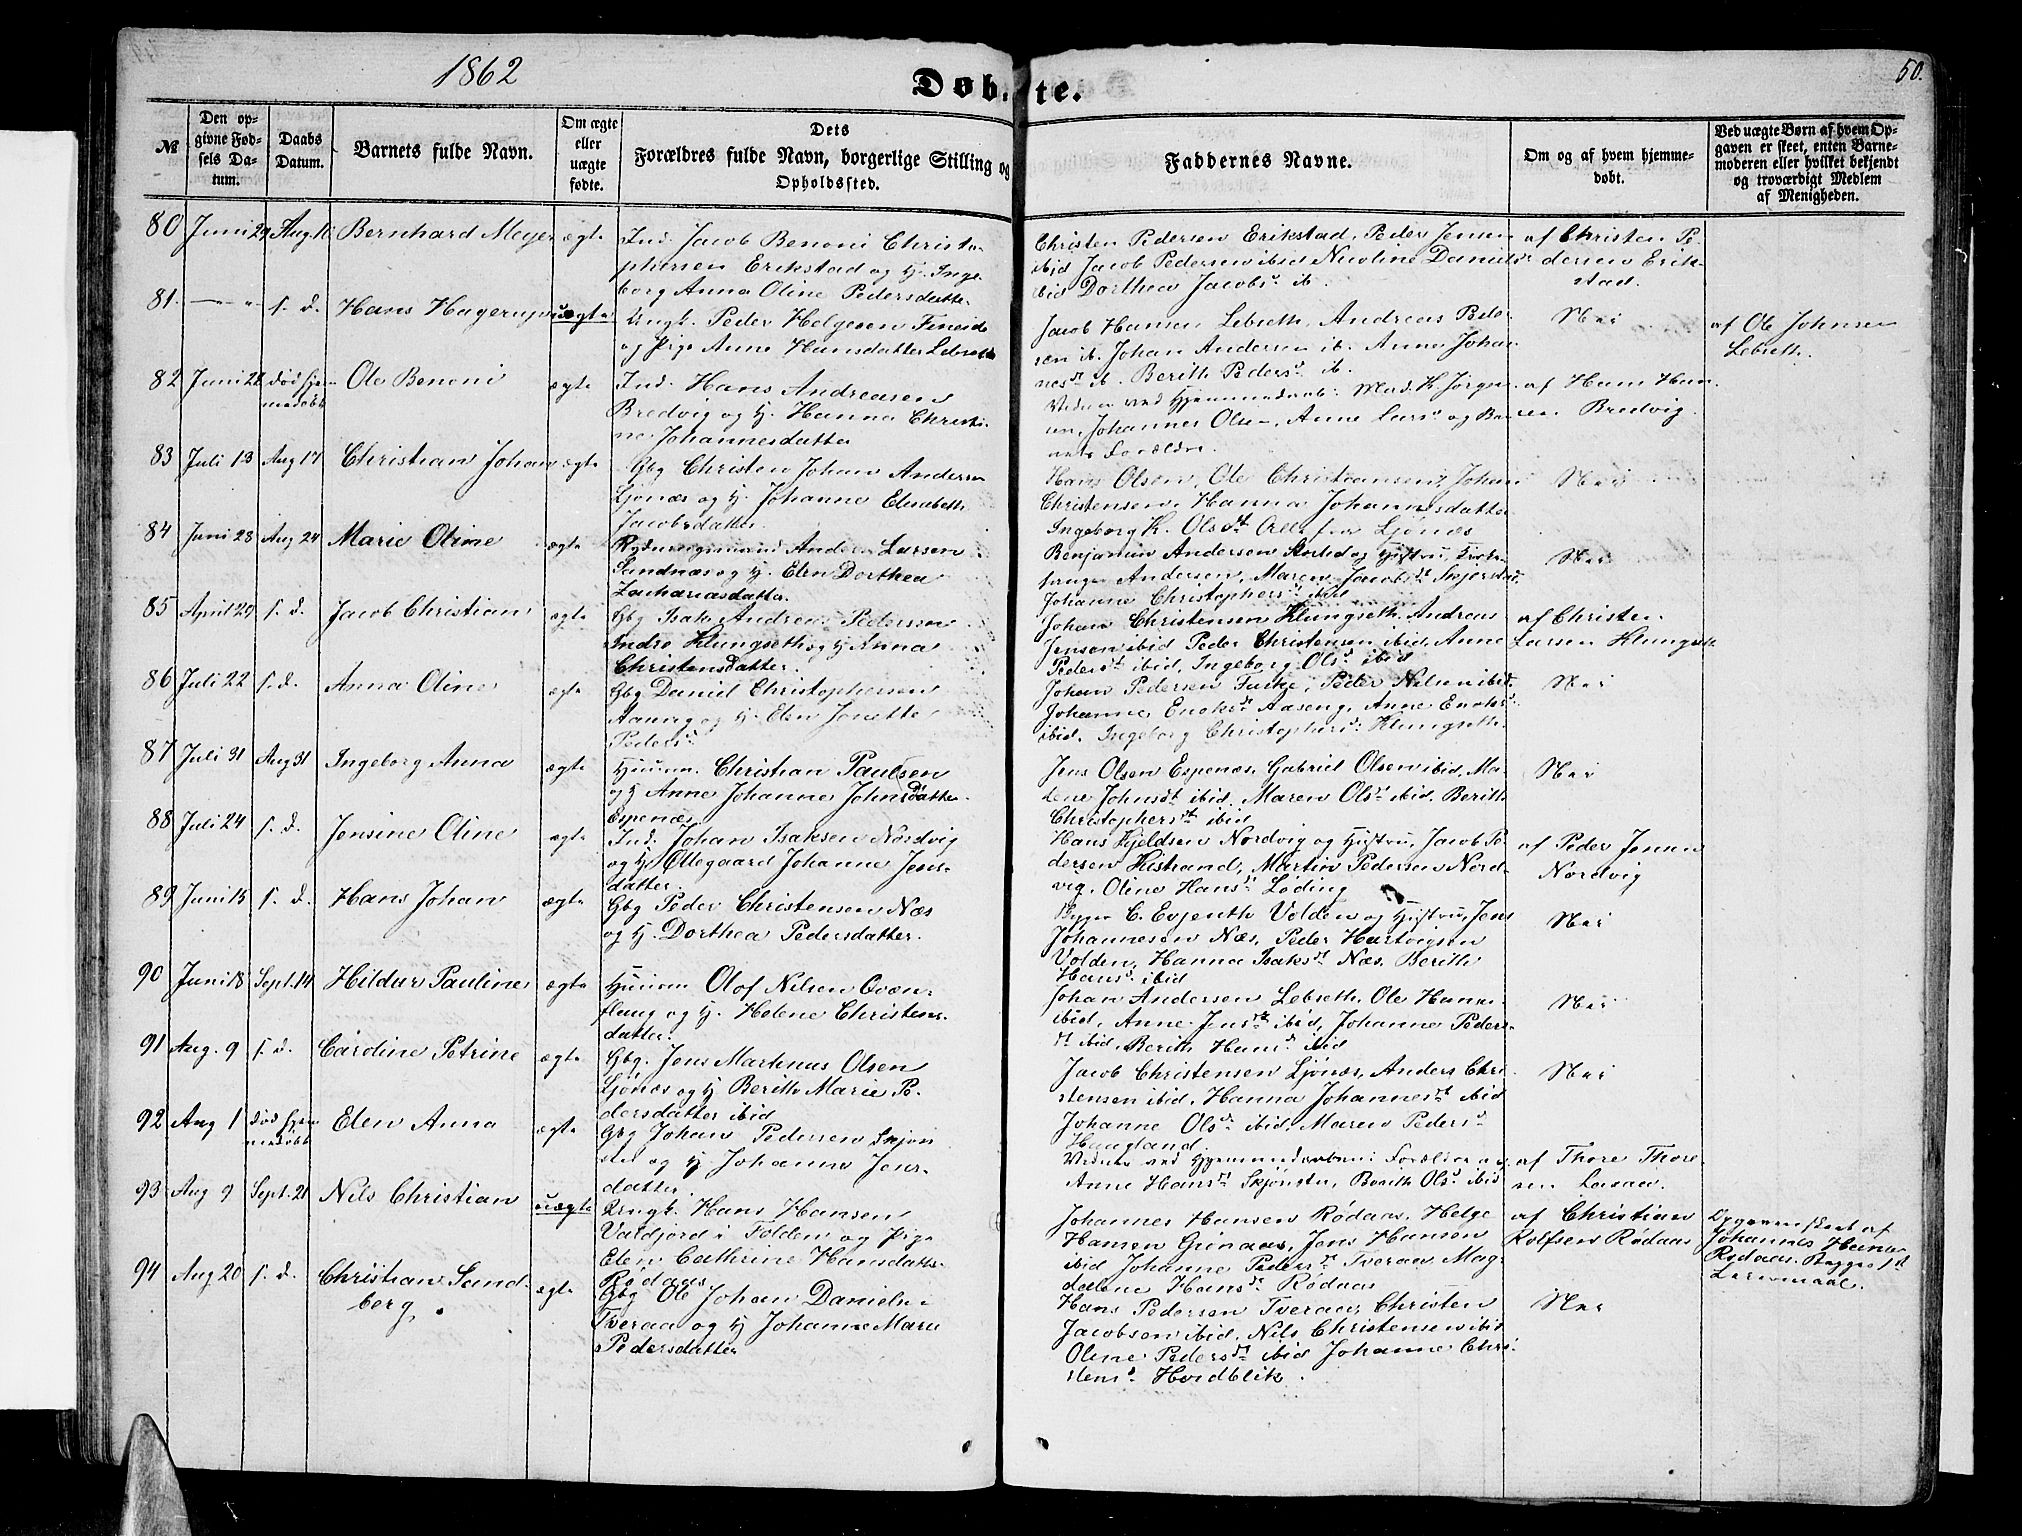 1862
Døbte.
50.
№
Den opgivne Fødsels Datum.
Daabs Datum.
Barnets fulde Navn.
Om ægte eller uægte fødte.
Dets Forældres fulde Navn, borgerlige Stilling og Opholdssted.
Faddernes Navne.
Om og af hvem hjemmedøbt.
Ved uægte Børn af hvem Opgaven er skeet, enten Barnemoderen eller hvilket bekjendt og troværdigt Medlem af Menigheden.
80 Juni 29 Aug. 10 Bernhard Meyer ægte
Ind. Jacob Benoni Christo-
phersen Erikstad og H. Inge-
borg Anna Oline Pedersdatter
Christen Pedersen Erikstad, Peder Jensen
ibid Jacob Pedersen ibid Nicoline Daniels
ibid Dorthea Jacobs ib.
af Christen Pe-
dersen Erik-
stad.
81. s. d. Hans Hagerup uægte
Ungk. Peder Helgesen Fineide
og Pige Anne Hansdatter Lebseth
Jacob Hansen Lebseth, Andreas Peder-
sen ib. Johan Andersen ib. Anne Johan-
nesdt ib. Berith Peders. ib.
Nei
af Ole Johnsen
Lebseth.
82 Juni 28 død hjem-
medøbt Ole Benoni ægte
Ind. Hans Andreasen
Bredvig og H. Hanna Christi-
ne Johannesdatter
Vidner ved Hjemmedaab: Mad. K. Jörgen-
sen, Johannes Olsen, Anne Lars. og Bar-
nets Forældre.
af Hans Han-
sen Bredvig.
83 Juli 13 Aug 17 Christian Johan ægte
Gbg Christen Johan Andersen
Ljönæs og H. Johanne Elisabeth
Jacobsdatter.
Hans Olsen, Ole Christiansen, Johan
Christensen, Hanna Johannesdatter
Ingeborg K. Olsdt Alle fra Ljönæs
Nei
84 Juni 23 Aug 24 Marie Oline ægte
Rydningsmand Anders Larsen
Sandnæs og H. Elen Dorthea
Zachariasdatter.
Benjamin Andersen og Hustru,
Andersen, Maren Jacobsdt
Johanne Christophers. ibid
Nei
85 April 29 s. d. Jacob Christian ægte
Gbg Isak Andreas Pedersen
Indre Klungseth og H. Anna
Christensdatter.
Johan Christensen Klungseth, Andreas
Jensen ibid Peder Christensen ibid, Anne
Pedersdt ibid, Ingeborg Ols. ibid
af Christen
Larsen Klungseth
86 Juli 22 s. d. Anna Oline ægte
Gbg Daniel Christophersen
og H. Elen Jonette
Peders.
Johan Pedersen Fuske, Peder Nilsen ibid.
Johanne Enoks. Aaseng, Anne Enoks.
ibid. Ingeborg Christophers. Klungseth.
Nei
87 Juli 31 Aug 31 Ingeborg Anna ægte
Huusm. Christian Paulsen
og H Anne Johanne Johnsdatter
Espenæs
Jens Olsen Espenæs, Gabriel Olsen ibid, Ma-
lene Johnsdt ibid, Maren Ols. ibid, Berith
Christophersdt ibid
Nei
88 Juli 24 s. d. Jensine Oline ægte
Ind. Johan Isaksen Nordvig
og H. Ollegaard Johanne Jens-
datter.
Hans Kjeldsen Nordvig og Hustru, Jacob Pe-
dersen Histrand, Martin Pedersen Nord-
vig, Oline Hans. Løding
af Peder Jensen
Nordvig
89 Juni 15 s. d. Hans Johan ægte
Gbg Peder Christensen Næs
og H. Dorthea Pedersdatter.
C. Evjenth Volden og Hustru, Jens
Johannesen Næs, Peder Hartvigsen
Volden, Hanna Isaks. Næs, Berith
Hans. ibid
Nei
90 Juni 18 Sept. 14 Hildur Pauline ægte
Huusm Olof Nilsen Qvæn-
flaug og H. Helene Christens-
datter.
Johan Andersen Lebseth, Ole Hansen
ibid, Anne Jensdt ibid, Johanne Peders-
dt ibid, Berith Hans. ibid
Nei
91 Aug. 9 s. d. Caroline Petrine ægte
Gbg. Jens Martinus Olsen
Ljönæs og H Berith Marie Pe-
dersdatter ibid
Jacob Christensen Ljönæs, Anders Chri-
stensen ibid, Hanna Johannesdt ibid
Johanne Ols. ibid, Maren Peders.
Haugland
Nei
92 Aug 1 død hjem-
medøbt Elen Anna ægte
Gbg Johan Pedersen Skjön-
stu og H Johanne Jens-
datter.
Vidner ved Hjemmedaaben: Forældre og
Anne Hans. Skjönstu, Berith Ols. ibid
af Thore Thore-
sen
93 Aug 9 Sept. 21 Nils Christian uægte
Ungk. Hans Hansen
Valdjord i Folden og Pige
Elen Cathrine Hansdatter
Rødaas
Johannes Hansen Rødaas, Helge
Hansen Grönaas, Jens Hansen
ibid Johanne Peders. Tveraa Mag-
dalene Hans. Rødaas
af Christian
Rolfsen Rødaas
Opgaven skeet af
Johannes Hansen
Rødaas.
94 Aug 20 s. d. Christian Sand-
berg. ægte
Gbg Ole Johan Danielsen
Tveraa og H Johanne Marie
Pedersdatter
Hans Pedersen Tveraa, Christen
Jacobsen ibid, Nils Christensen ibid
Oline Peders. ibid Johanne Chri-
stens. Hvidblik.
Nei